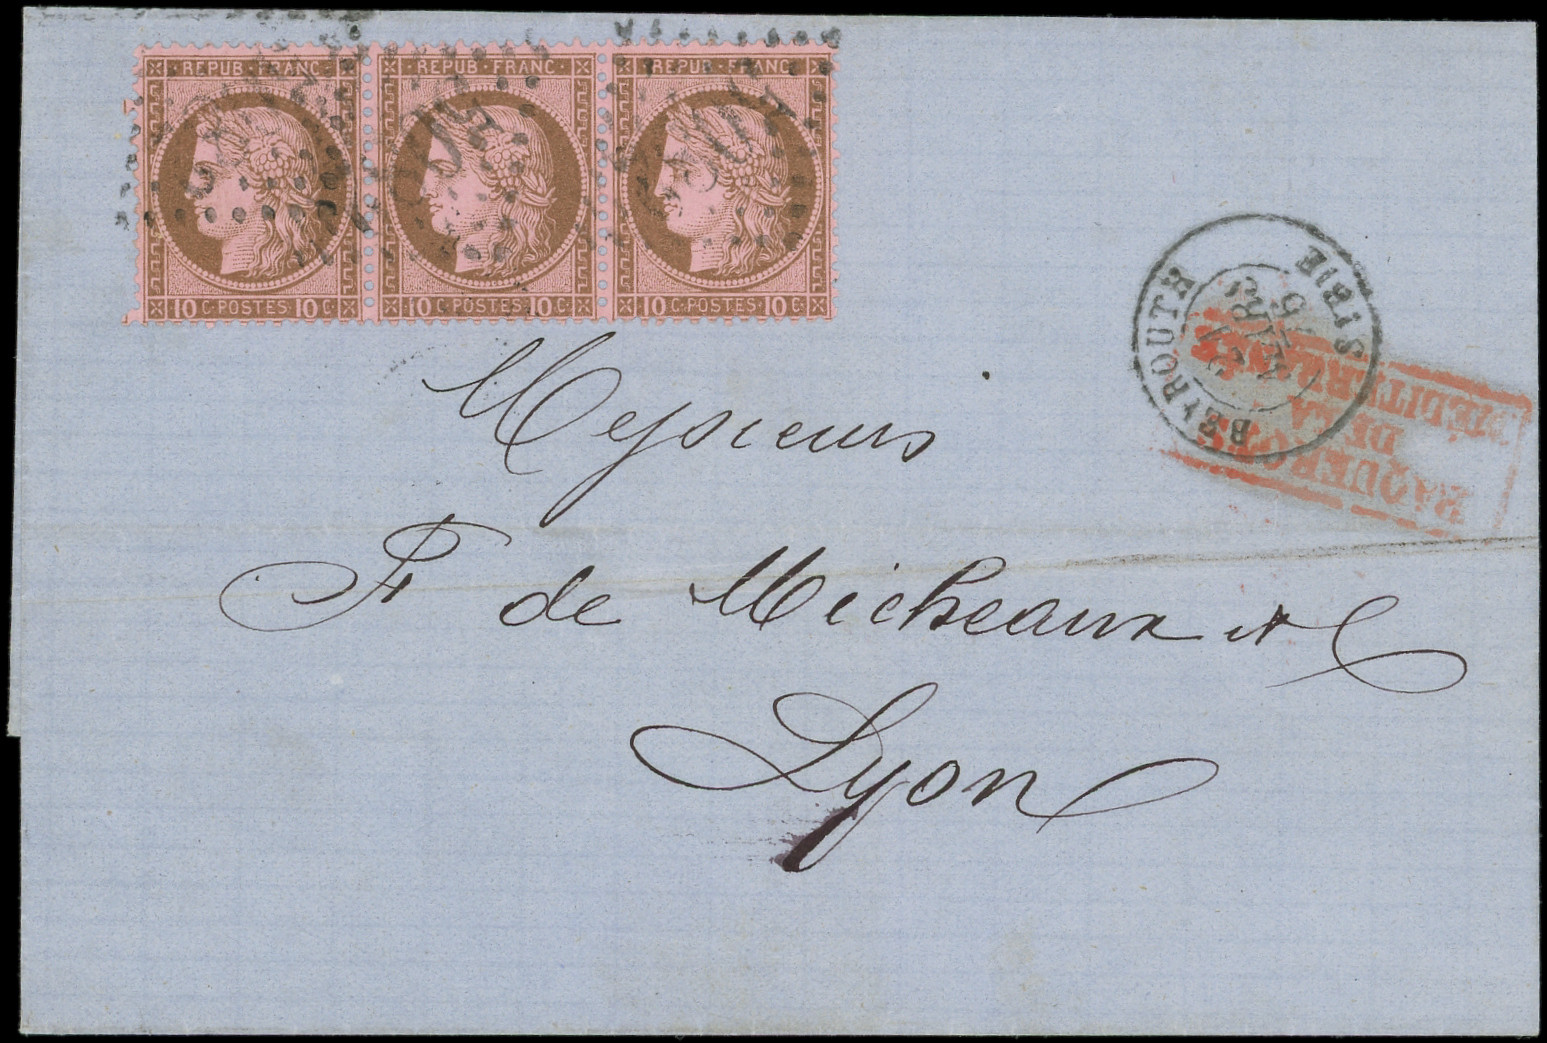 REPUB · FRANC
REPUB · FRANC
REPUB · FRANC
10 C · POSTES · 10 C
10 C · POSTES · 10 C
10 C · POSTES · 10 C
BEYROUTH
SYRIE
PAQUEBOTS
DE LA
MÉDITERRANÉE
Messieurs
F. de Micheaux et C
Lyon